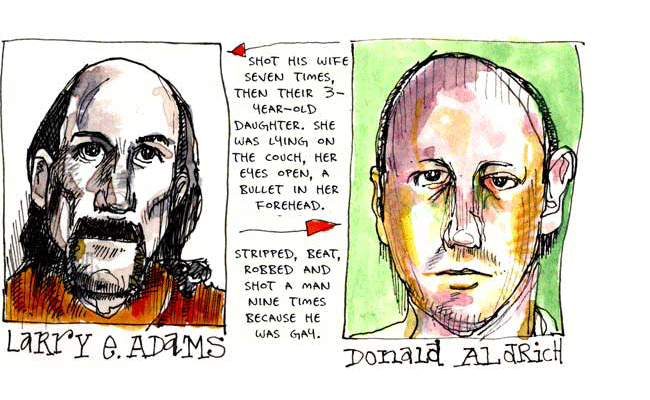 SHOT HIS WIFE
SEVEN TIMES,
THEN THEIR 3-
YEAR-OLD
DAUGHTER. SHE
WAS LYING ON
THE COUCH, HER
EYES OPEN, A
BULLET IN HER
FOREHEAD.
STRIPPED, BEAT,
ROBBED AND
SHOT A MAN
NINE TIMES
BECAUSE HE
WAS GAY.
LARRY E. ADAMS
DONALD ALDRICH